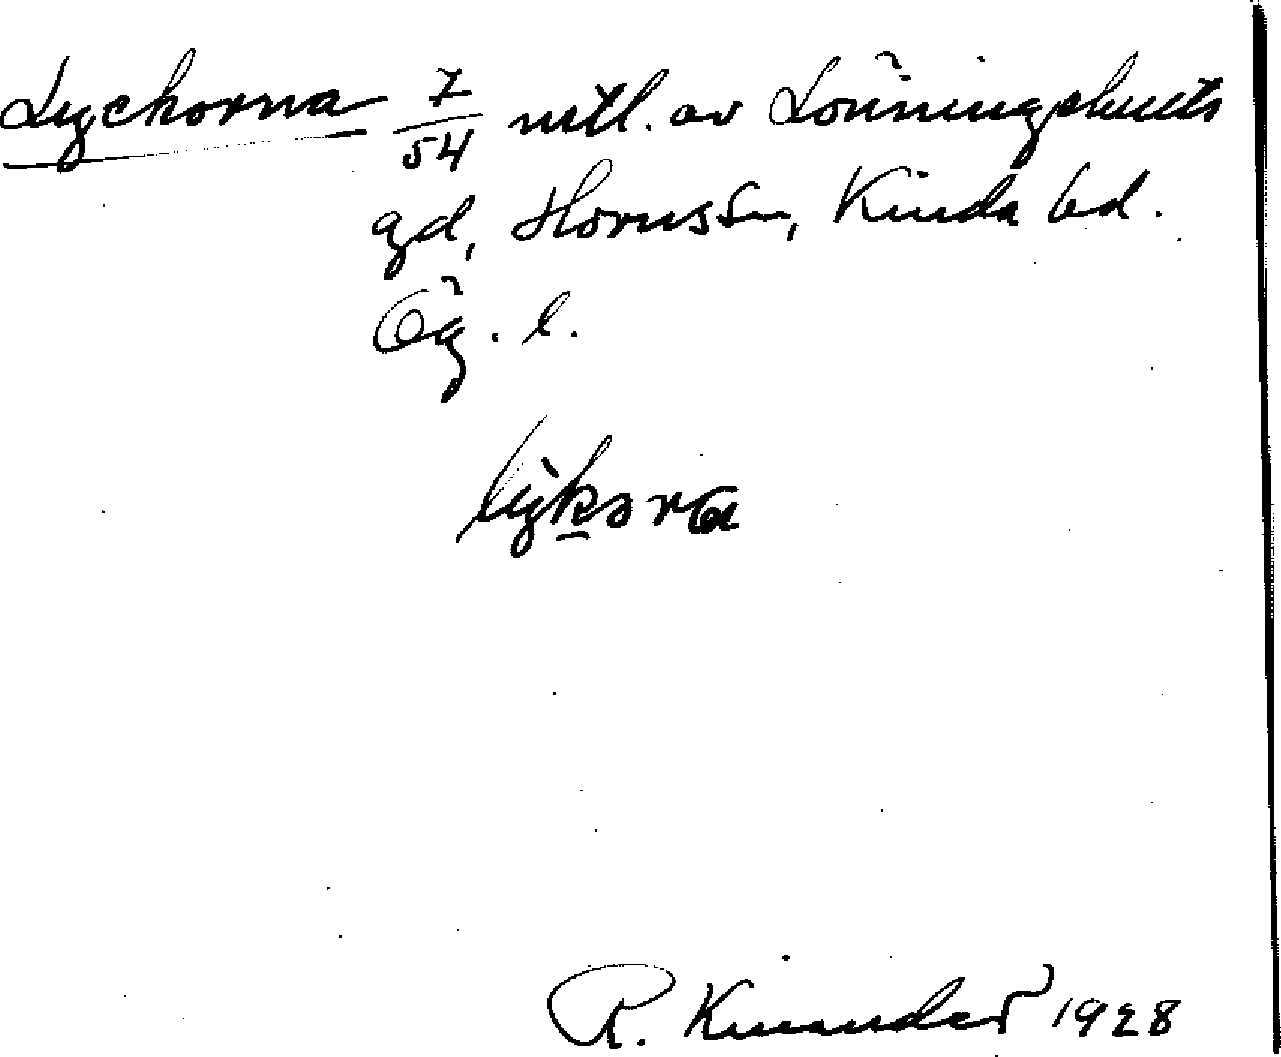 Lyckorna 7/54 mtl. av Lönningshults
gd, Horns sn, Kinda hd.
Ög. l.
lỳkəra
R. Kinander 1928